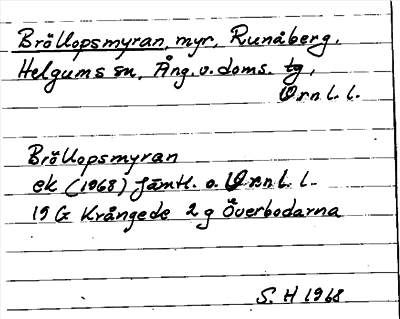 Bröllopsmyran, myr, Runåberg.
Helgums sn, Ång. v. doms. tg,
Örnl. l.
Bröllopsmyran
ek (1968) Jämtl. o. Örnl. l.
19 G Krångede 2 g Överbodarna
S. H 1968